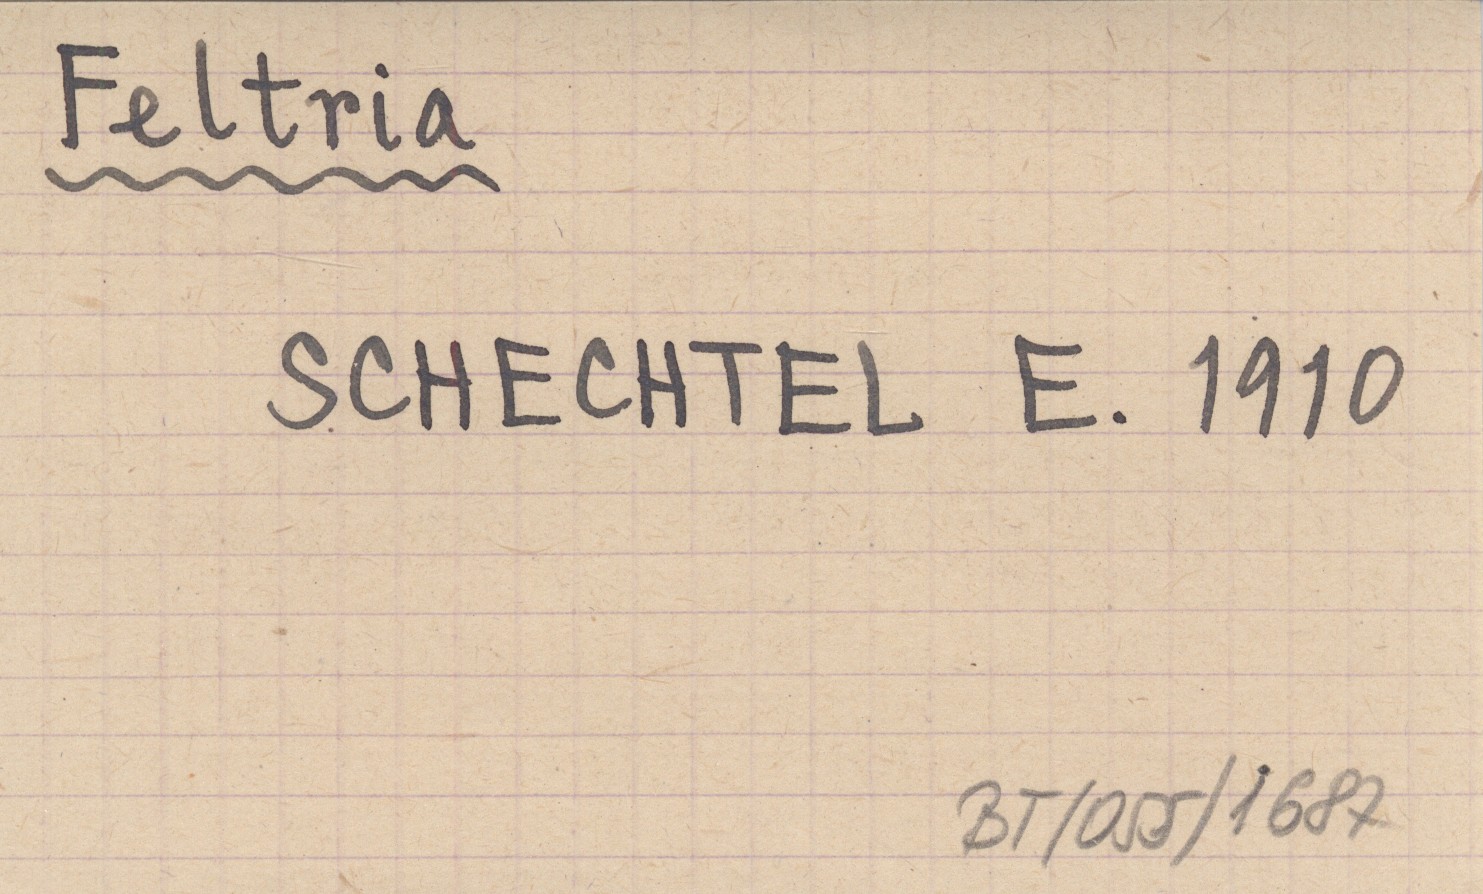 Feltria
SCHECHTEL E. 1910
BT/055/1687